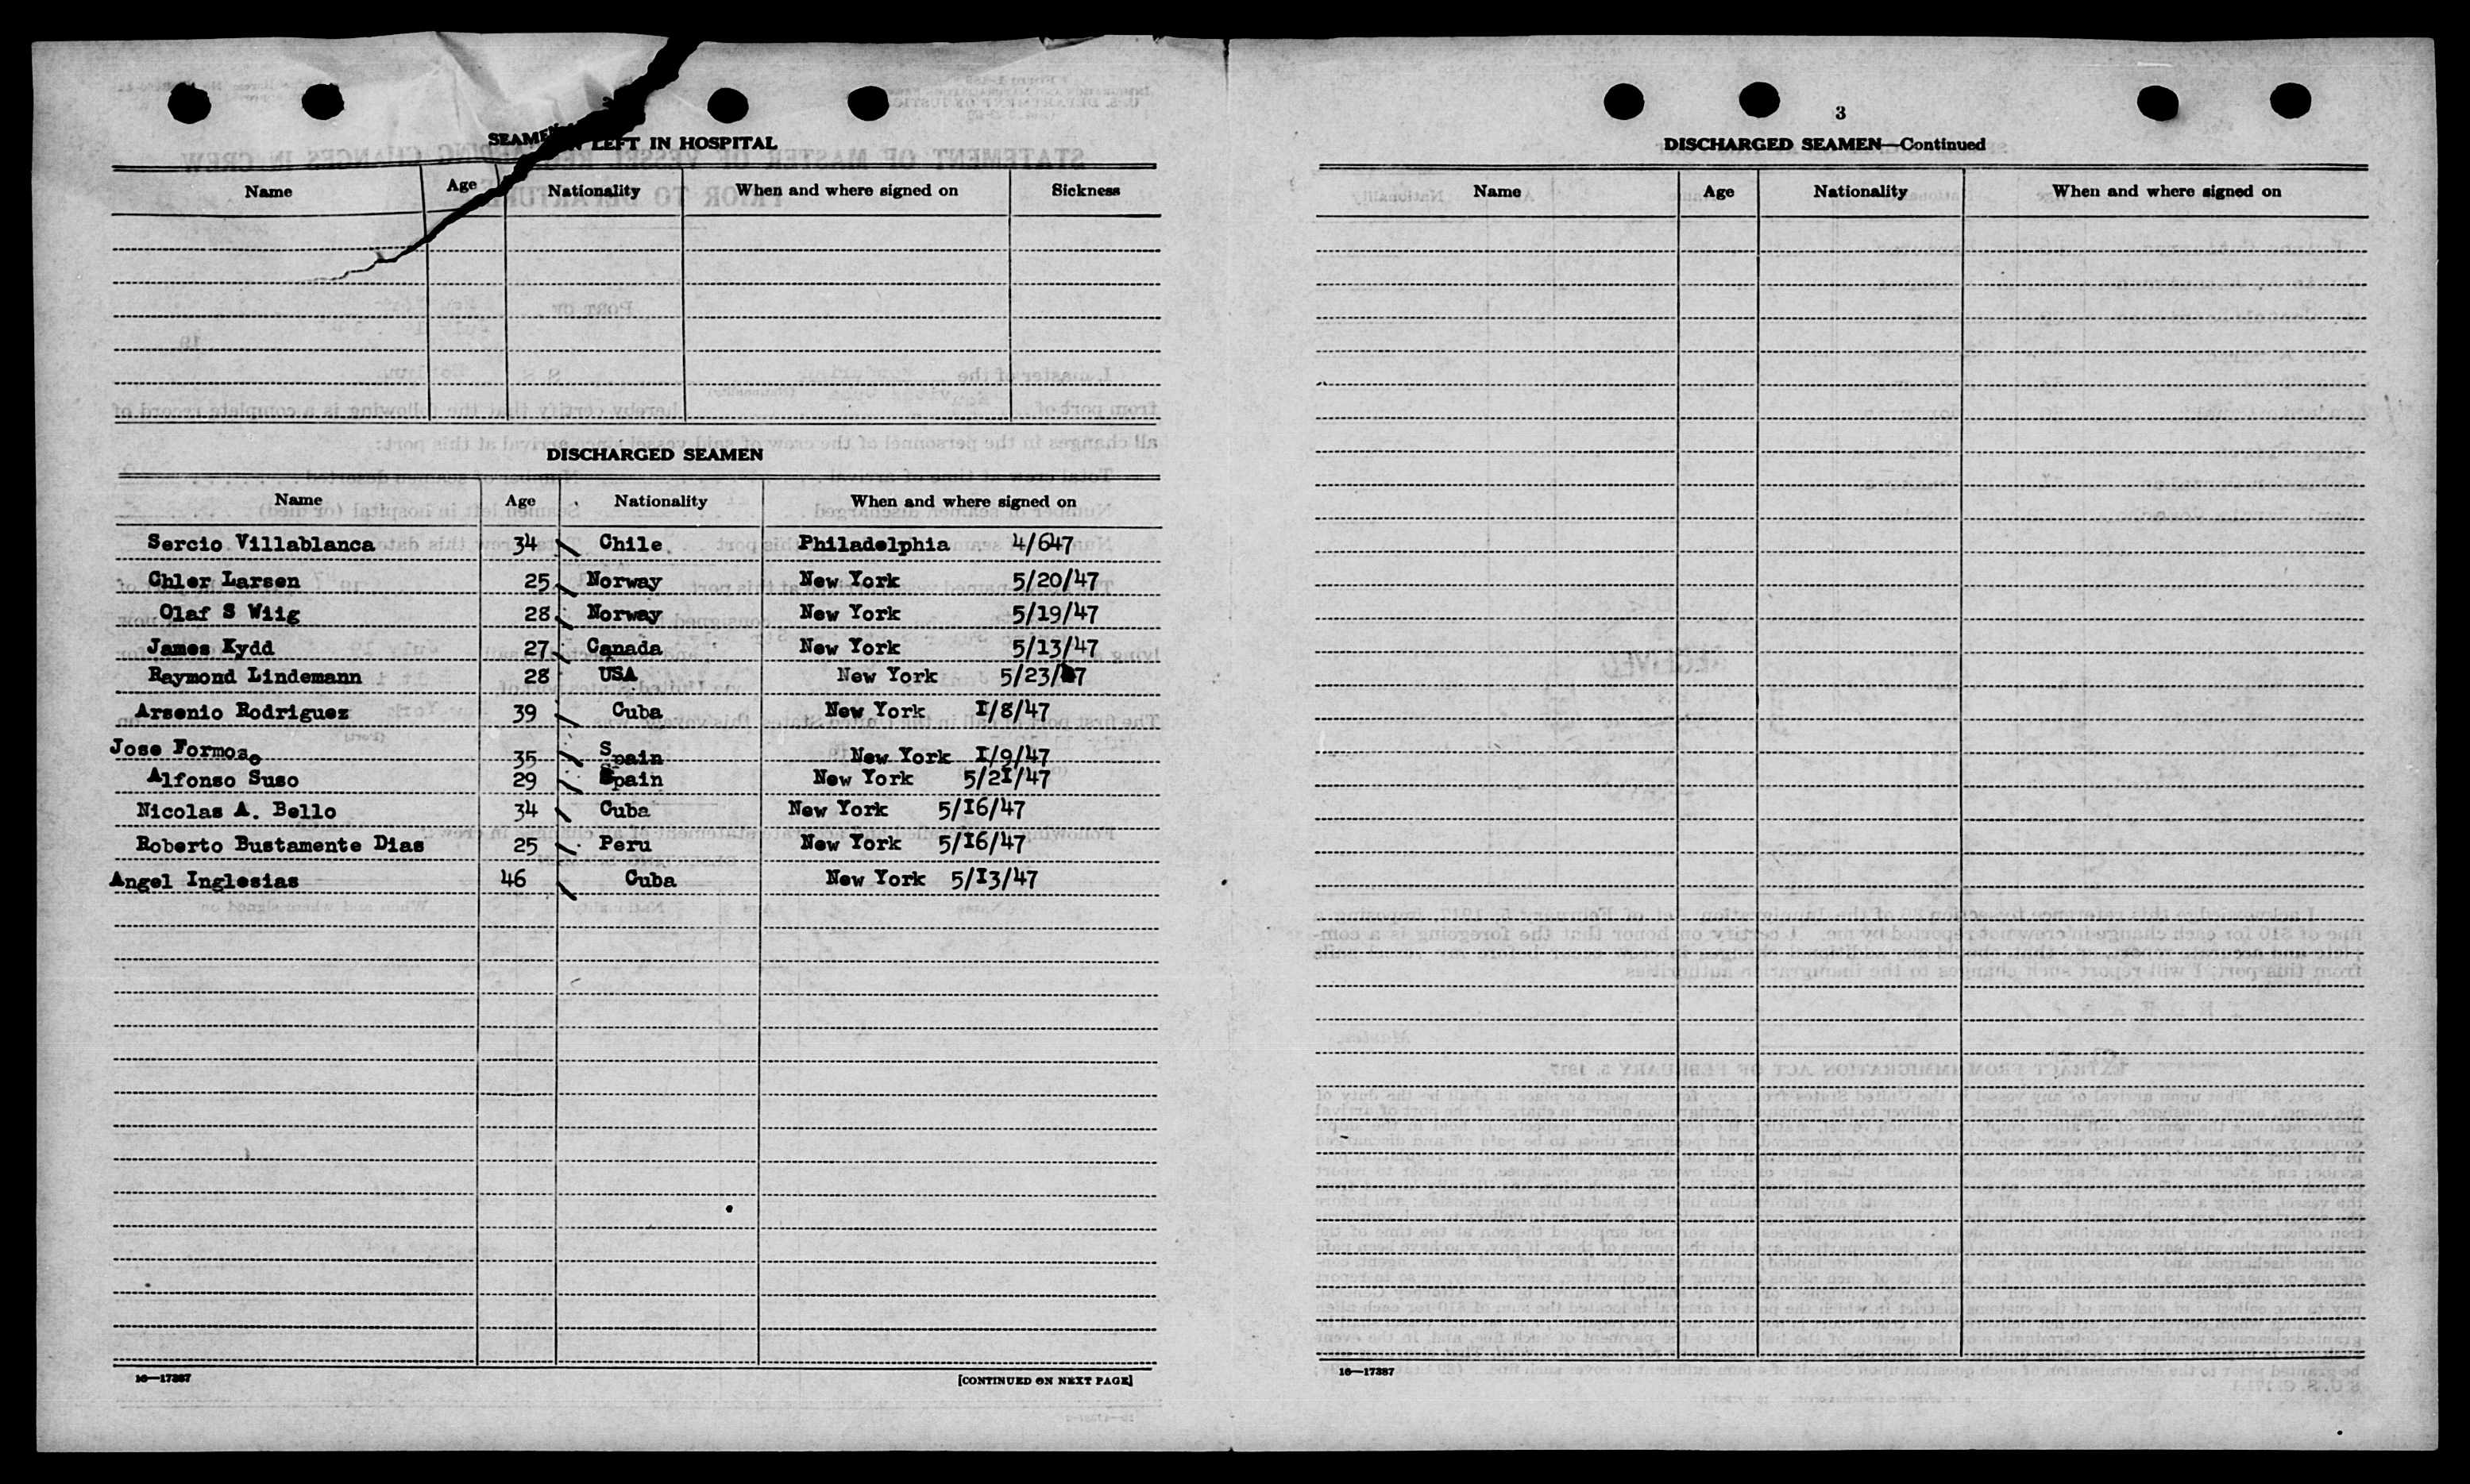 2
SEAMEN LEFT IN HOSPITAL
Name Age Nationality When and where signed on Sickness
DISCHARGED SEAMEN
Name Age Nationality When and where signed on
Sercio Villablanca 34 Chile Philadelphia 4/647
Chler Larsen 25 Norway New York 5/20/47
Olaf S Wiig 28 Norway New York 5/19/47
James Kydd 27 Canada New York 5/13/47
Raymond Lindemann 28 USA New York 5/23/47
Arsenio Rodriguez 39 Cuba New York I/8/47
Jose Formoso 35 Spain New York I/9/47
Alfonso Suso 29 Spain New York 5/2I/47
Nicolas A. Bello 34 Cuba New York 5/I6/47
Roberto Bustamente Dias 25 Peru New York 5/I6/47
Angel Inglesias 46 Cuba New York 5/I3/47
16—17387 [CONTINUED ON NEXT PAGE]
3
DISCHARGED SEAMEN—Continued
Name Age Nationality When and where signed on
16—17387